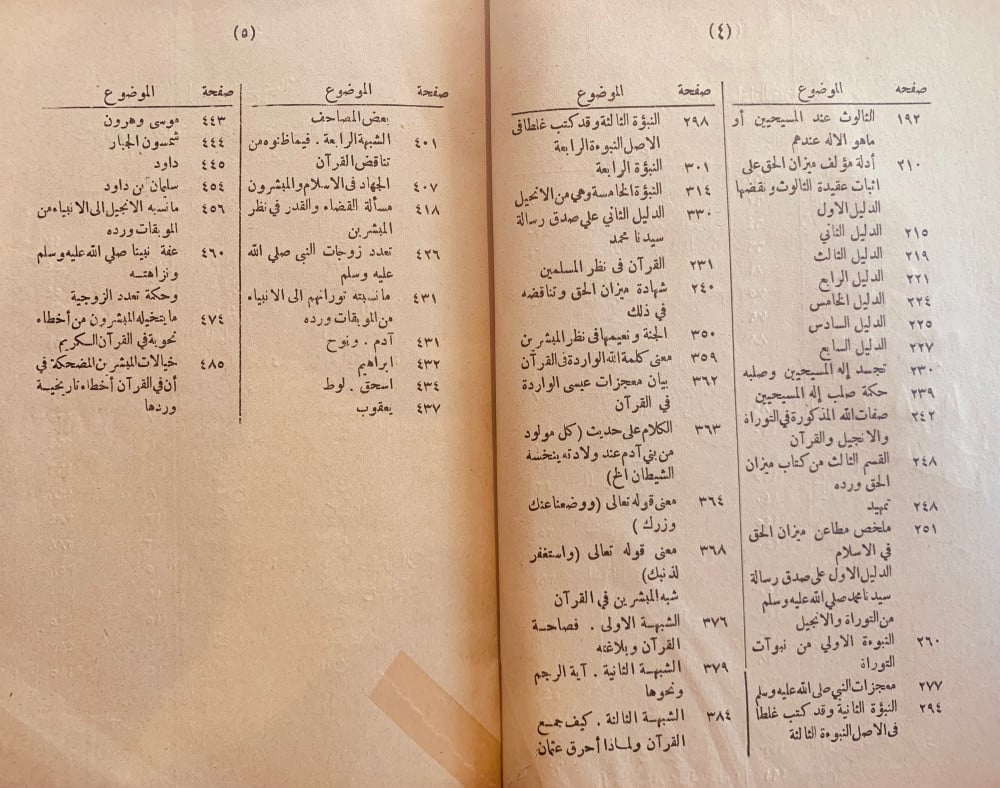 (٤)
صفحه الموضوع
١٩٢ الثالوث عند المسيحيين أو
ماهو الاله عندهم
٢١٠ أدلة مؤلف ميزان الحق على
اثبات عقيدة الثالوث ونقضها
الدليل الاول
٢١٥ الدليل الثاني
٢١٩ الدليل الثالث
٢٢١ الدليل الرابع
٢٢٤ الدليل الخامس
٢٢٥ الدليل السادس
٢٢٧ الدليل السابع
٢٣٠ تجسد إله المسيحيين وصلبه
٢٣٩ حكمة صلب إله المسيحيين
٢٤٢ صفات الله المذكورة في التوراة
والانجيل والقرآن
٢٤٨ القسم الثالث من كتاب ميزان
الحق ورده
٢٤٨ تمهيد
٢٥١ ملخص مطاعن ميزان الحق
في الاسلام
الدليل الاول على صدق رسالة
سيدنا محمد صلى الله عليه وسلم
من التوراة والانجيل
٢٦٠ النبوءة الاولي من نبوآت
التوراة
٢٧٧ معجزات النبي صلى الله عليه وسلم
٢٩٤ النبؤة الثانية وقد كتب غلطا
فى الاصل النبوءة الثالثة
صفحة الموضوع
٢٩٨ النبؤة الثالثة وقد كتب غلطا فى
الاصل النبوءة الرابعة
٣٠١ النبؤة الرابعة
٣١٤ النبؤة الخامسة وهي من الانجيل
٣٣٠ الدليل الثاني علي صدق رسالة
سيدنا محمد
٢٣١ القرآن فى نظر المسلمين
٢٤٠ شهادة ميزان الحق وتناقضه
في ذلك
٣٥٠ الجنة ونعيمها فى نظر المبشرين
٣٥٩ معنى كلمة الله الواردة فى القرآن
٣٦٢ بيان معجزات عيسى الواردة
في القرآن
٣٦٣ الكلام على حديث (كل مولود
من بني آدم عند ولادته ينخسه
الشيطان الخ)
٣٦٤ معنى قوله تعالى (ووضعنا عنك
وزرك)
٣٦٨ معنى قوله تعالى (واستغفر
لذنبك)
شبه المبشرين في القرآن
٣٧٦ الشبهة الاولى . فصاحة
القرآن وبلاغته
٣٧٩ الشبهة الثانية . آية الرجم
ونحوها
٣٨٤ الشبهة الثالثة . كيف جمع
القرآن ولماذا أحرق عثمان
(٥)
صفحة الموضوع
بعض المصاحف
٤٠١ الشبهة الرابعة . فيما ظنوه من
تناقض القرآن
٤٠٧ الجهاد فى الاسلام والمبشرون
٤١٨ مسألة القضاء والقدر في نظر
المبشرين
٤٢٦ تعدد زوجات النبى صلي الله
عليه وسلم
٤٣١ مانسبته توراتهم الى الانبياء
من الموبقات ورده
٤٣١ آدم . ونوح
٤٣٢ ابراهيم
٤٣٤ اسحق . لوط
٤٣٧ يعقوب
صفحة الموضوع
٤٤٣ موسى وهرون
٤٤٤ شمسون الجبار
٤٤٥ داود
٤٥٤ سليمان بن داود
٤٥٦ مانسبه الانجيل الى الانبياء من
الموبقات ورده
٤٦٠ عفة نبينا صلي الله عليه وسلم
ونزاهته
وحكمة تعدد الزوجية
٤٧٤ ما يتخيله المبشرون من أخطاء
نحوية في القرآن الكريم
٤٨٥ خيالات المبشرين المضحكة في
أن في القرآن أخطاء تاريخية
وردها